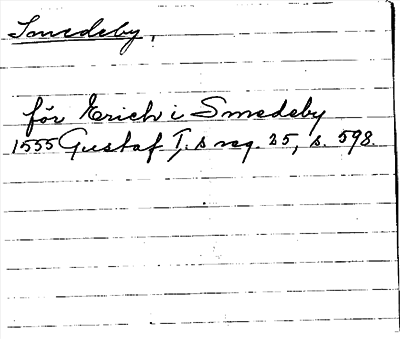 Smedeby,
för Erich i Smedeby
1555 Gustaf I:s reg. 25, s. 598.